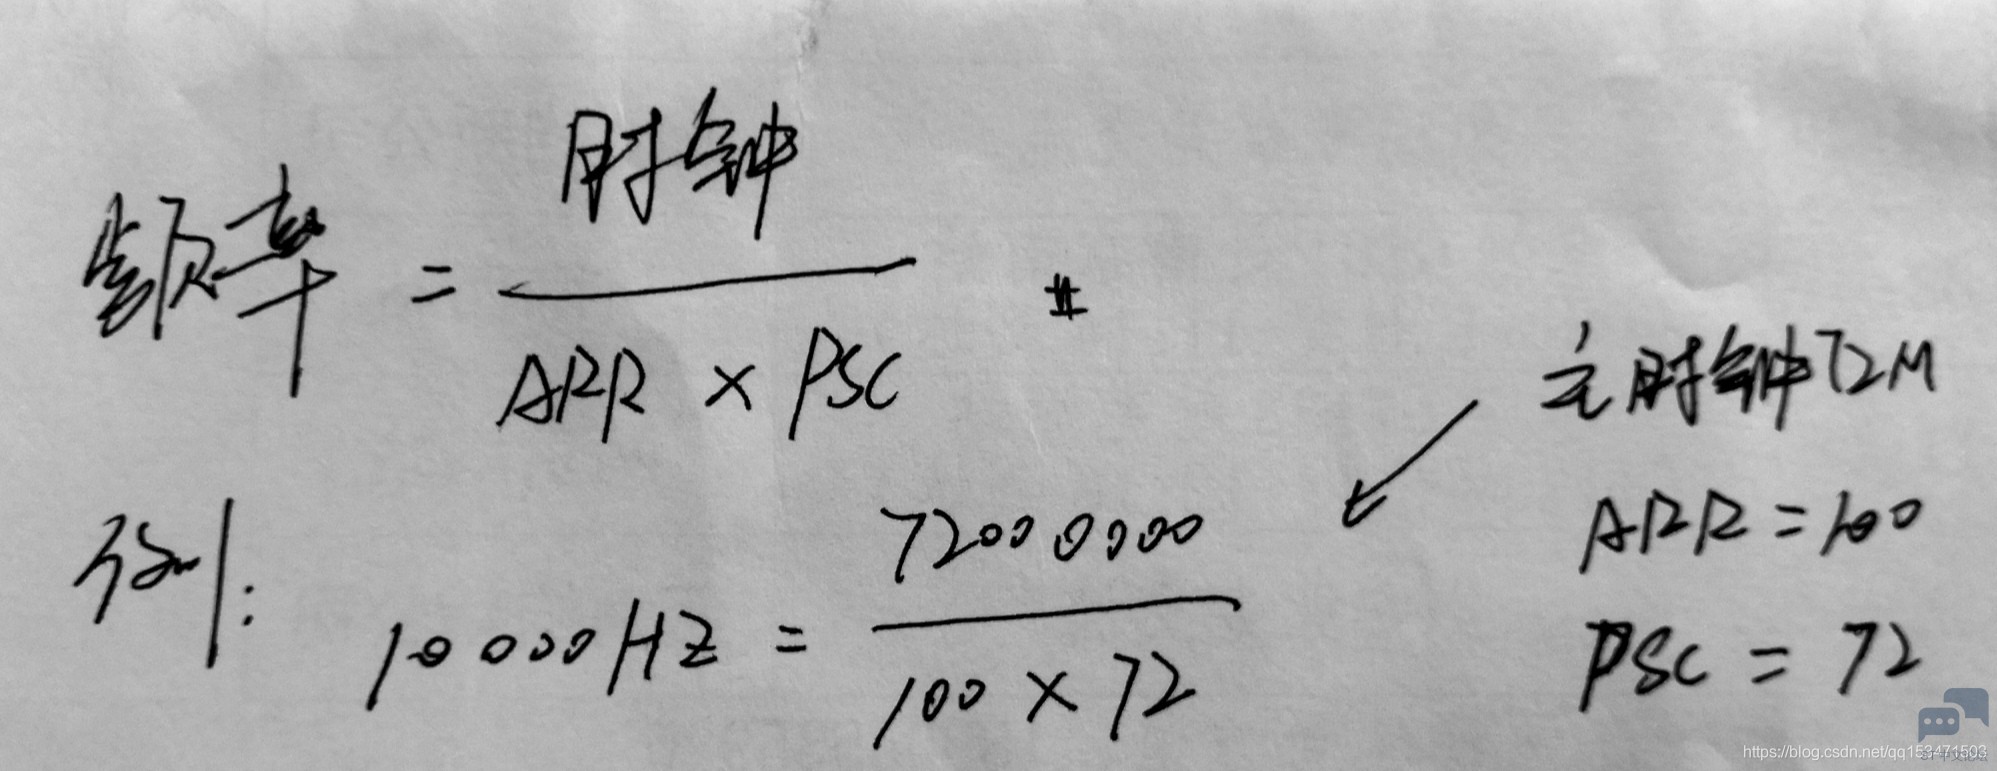 频率 = 时钟 / ARR × PSC #
主时钟72M
ARR = 100
PSC = 72
例: 10000HZ = 72000000 / 100 × 72
https://blog.csdn.net/qq153471503